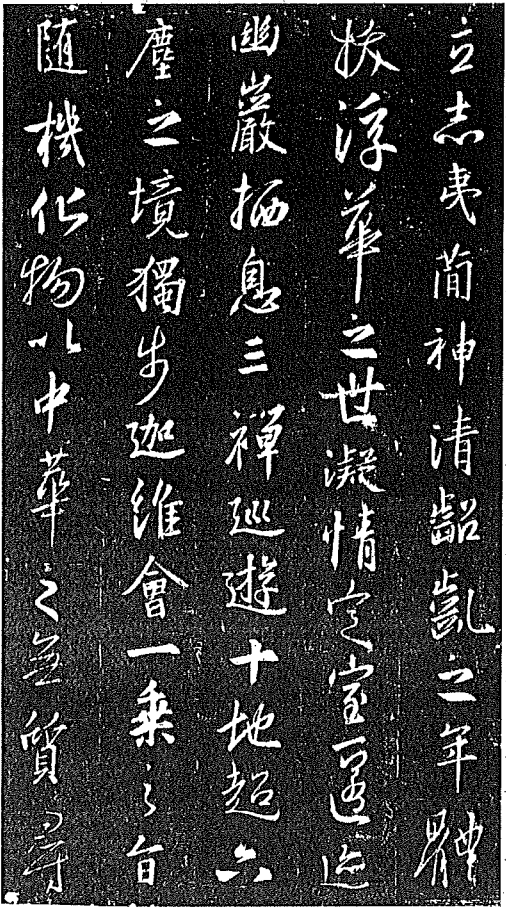 立志夷簡神清齠齔之年體
拔浮華之世凝情定室匿迹
幽巖栖息三禪巡遊十地超六
塵之境獨步迦維會一乘之旨
随機化物以中華之無質尋